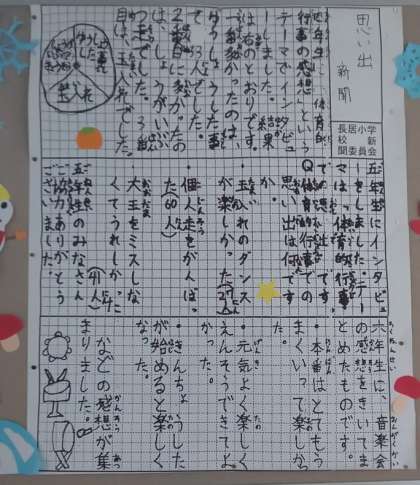 思い出
新聞
長居小学
校新
聞委員会
四年生に「体育的
行事の感想」という
テーマでインタビュ
ーしました。結果
は右のとおりです。
一番多かったのは、
て、13人でした。
2番目に多かったの
は、しょうがいぶ
つ走でした。3番
目は、玉入れでした。
玉入れ
五年生にインタビュ
ーをしました。テー
マは「体育的行事
での思い出」です。
Q体育的行事での
思い出は何です
か。
・玉入れのダンス
が楽しかった
・個人走をがんばっ
た(60人)
大玉をミスしな
くてうれしかった
五年生のみなさん
ご協力ありがとう
ございました。
六年生に、音楽会
の感想をきいてま
とめたものです。
・本番はとてもう
まくいって楽しかっ
た。
・元気よく楽しく
えんそうできてよ
かった。
・きんちょうした
が始めると楽しく
なった。
などの感想が集
まりました。